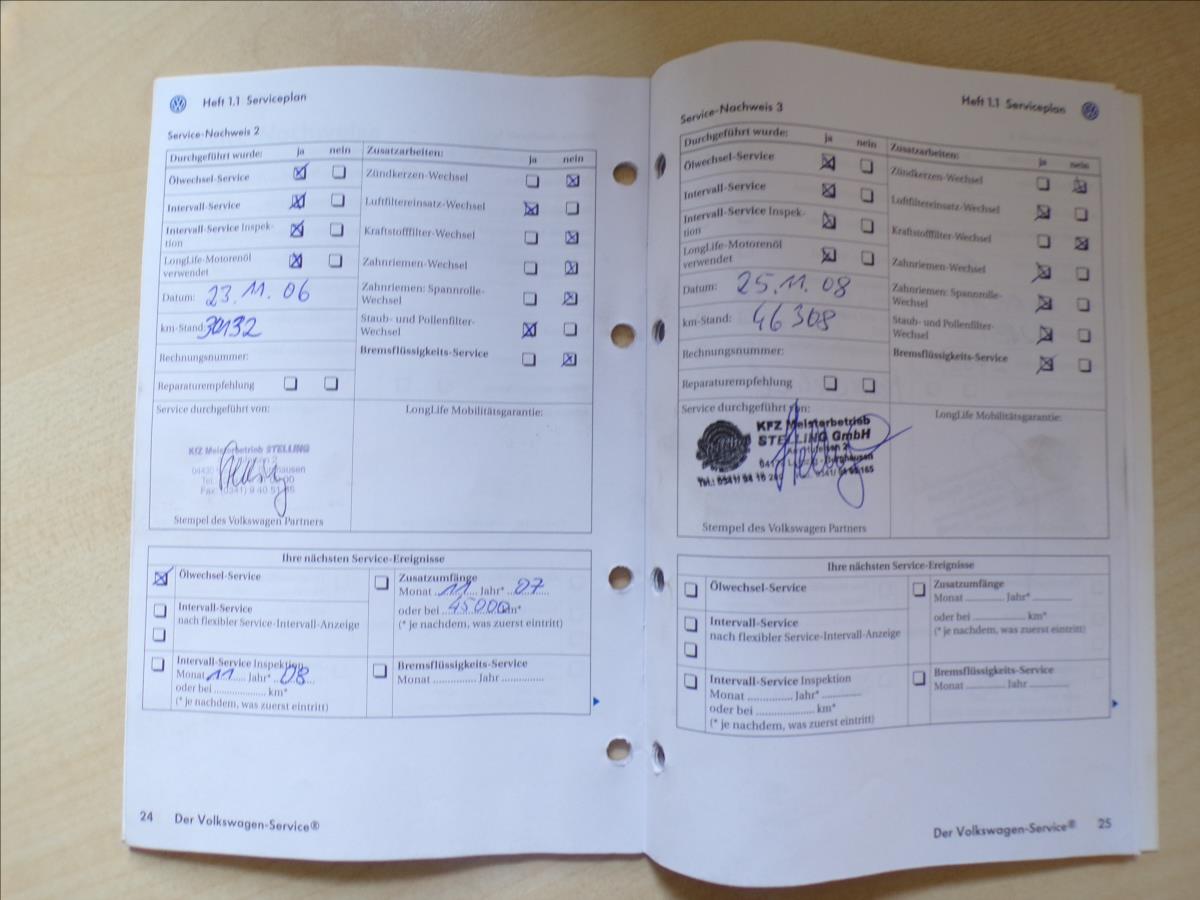 Heft 1.1 Serviceplan
Service-Nachweis 2
Durchgeführt wurde: ja nein
Ölwechsel-Service
Intervall-Service
Intervall-Service Inspek-
tion
LongLife-Motorenöl
verwendet
Datum: 23.11.06
km-Stand: 30132
Rechnungsnummer:
Reparaturempfehlung
Zusatzarbeiten: ja nein
Zündkerzen-Wechsel
Luftfiltereinsatz-Wechsel
Kraftstofffilter-Wechsel
Zahnriemen-Wechsel
Zahnriemen: Spannrolle-
Wechsel
Staub- und Pollenfilter-
Wechsel
Bremsflüssigkeits-Service
Service durchgeführt von:
KFZ Meisterbetrieb STELLING
Stempel des Volkswagen Partners
LongLife Mobilitätsgarantie:
Ihre nächsten Service-Ereignisse
Ölwechsel-Service
Intervall-Service
nach flexibler Service-Intervall-Anzeige
Intervall-Service Inspektion
Monat 11 Jahr* 08
oder bei .................... km*
(* je nachdem, was zuerst eintritt)
Zusatzumfänge
Monat 11 Jahr* 07
oder bei 45000 km*
(* je nachdem, was zuerst eintritt)
Bremsflüssigkeits-Service
Monat ............. Jahr .............
24 Der Volkswagen-Service®
Heft 1.1 Serviceplan
Service-Nachweis 3
Durchgeführt wurde: ja nein
Ölwechsel-Service
Intervall-Service
Intervall-Service Inspek-
tion
LongLife-Motorenöl
verwendet
Datum: 25.11.08
km-Stand: 46308
Rechnungsnummer:
Reparaturempfehlung
Zusatzarbeiten: ja nein
Zündkerzen-Wechsel
Luftfiltereinsatz-Wechsel
Kraftstofffilter-Wechsel
Zahnriemen-Wechsel
Zahnriemen: Spannrolle-
Wechsel
Staub- und Pollenfilter-
Wechsel
Bremsflüssigkeits-Service
Service durchgeführt von:
KFZ Meisterbetrieb
STELLING GmbH
Stempel des Volkswagen Partners
LongLife Mobilitätsgarantie:
Ihre nächsten Service-Ereignisse
Ölwechsel-Service
Intervall-Service
nach flexibler Service-Intervall-Anzeige
Intervall-Service Inspektion
Monat ............. Jahr* .............
oder bei .................... km*
(* je nachdem, was zuerst eintritt)
Zusatzumfänge
Monat ............. Jahr* .............
oder bei .................... km*
(* je nachdem, was zuerst eintritt)
Bremsflüssigkeits-Service
Monat ............. Jahr .............
Der Volkswagen-Service® 25